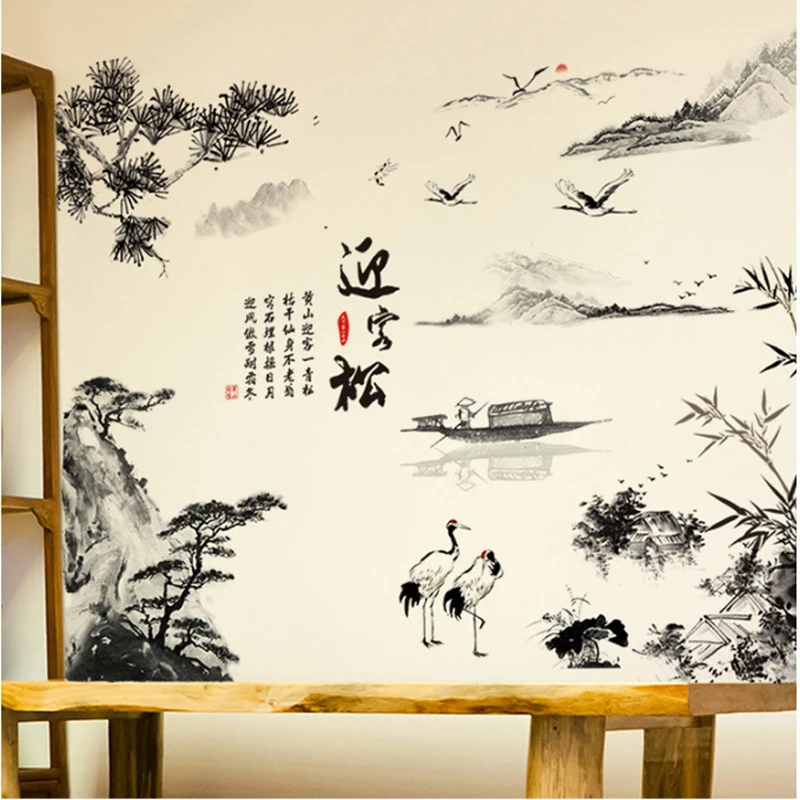 迎客松
黄山迎客一青松
枯干仙身不老翁
石埋根日月
迎风傲雪耐霜冬